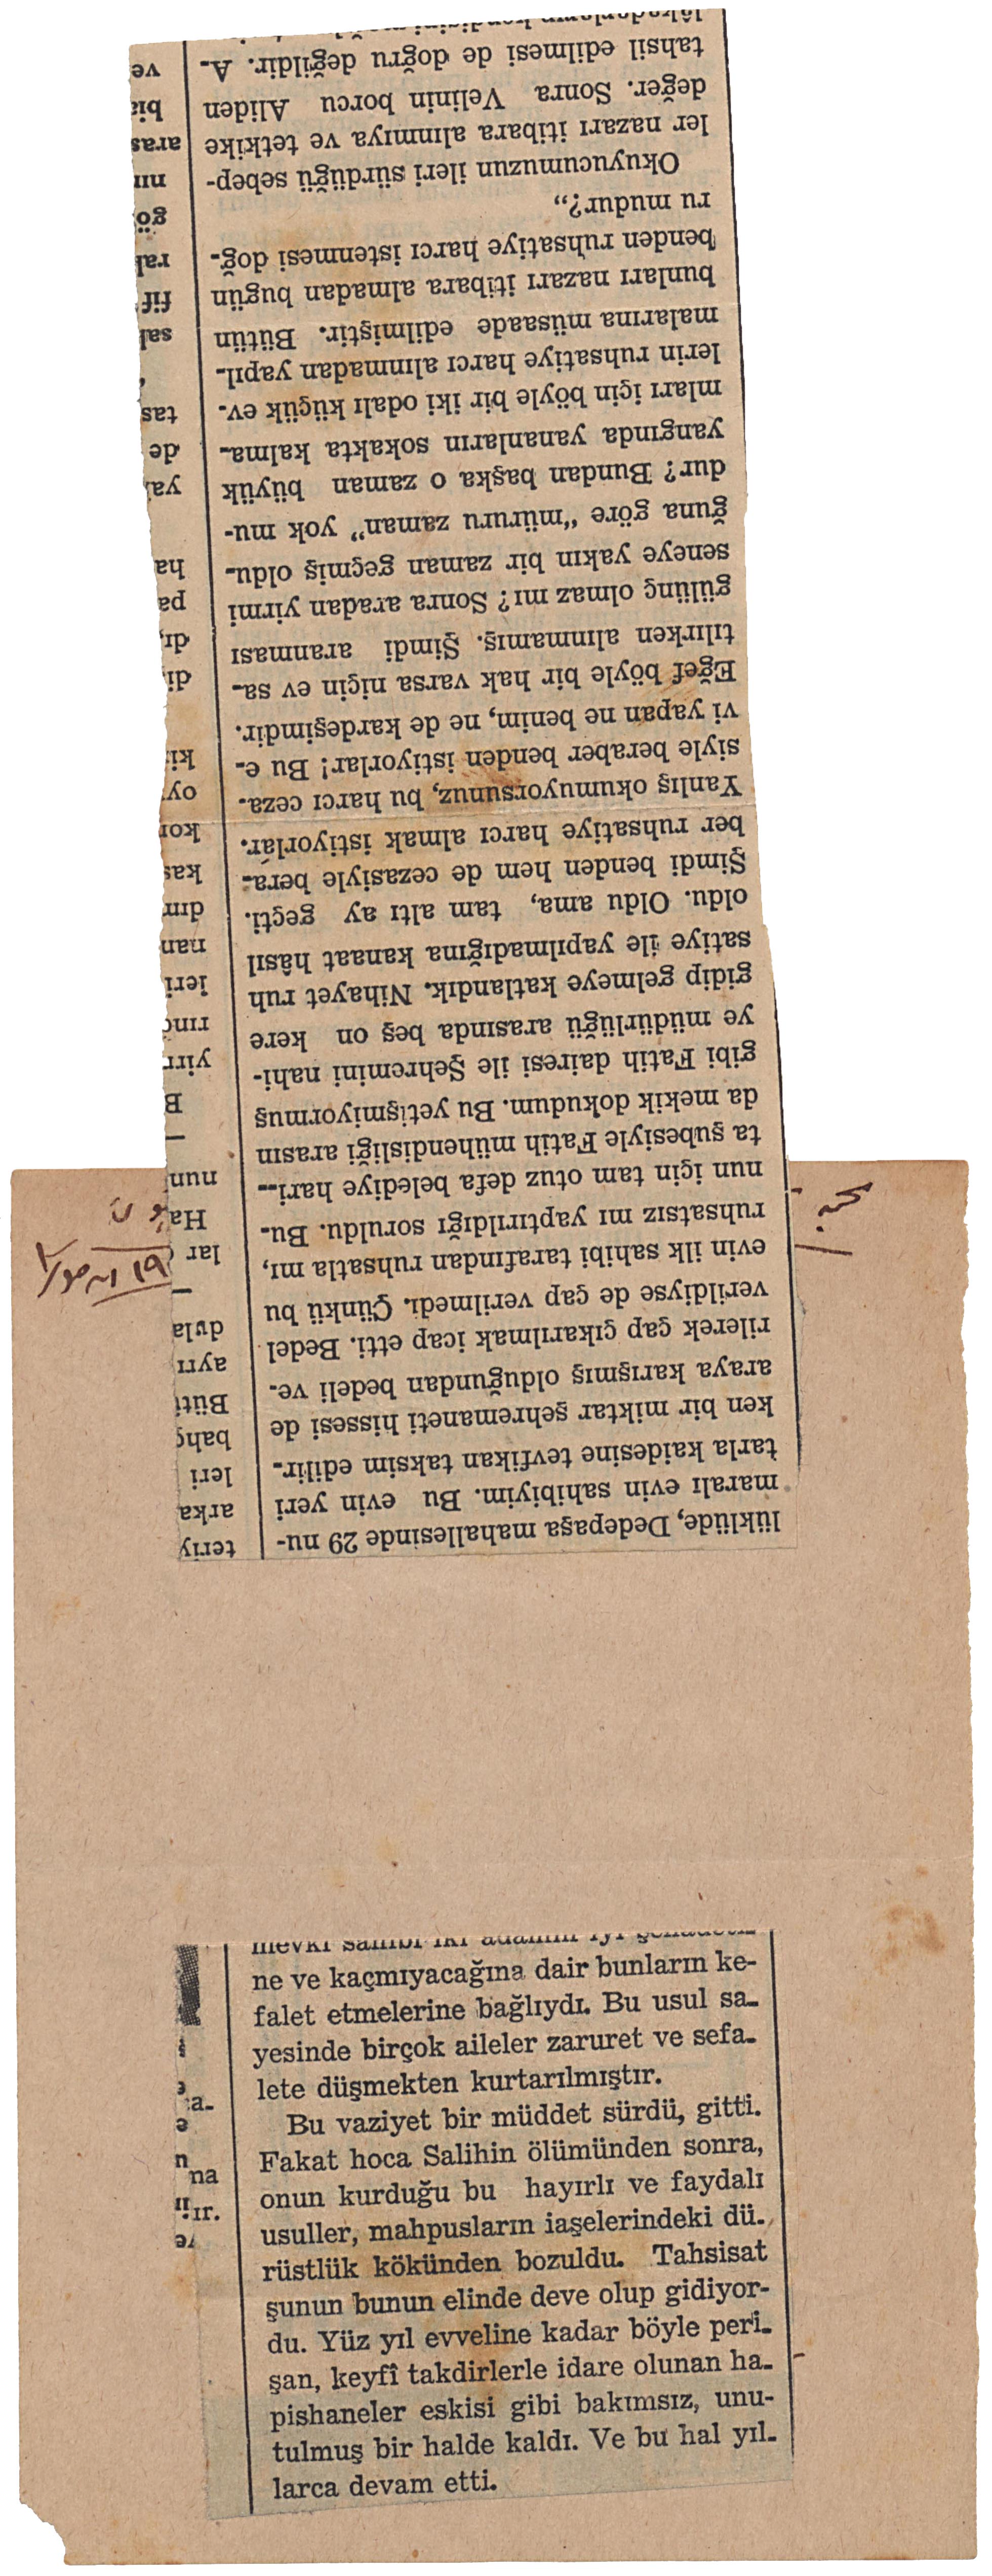 lüklüde, Dedepaşa mahallesinde 29 nu-
maralı evin sahibiyim. Bu evin yeri
tarla kaidesine tevfikan taksim edilir-
ken bir miktar şehremaneti hissesi de
araya karışmış olduğundan bedeli ve-
rilerek çap çıkarılmak icap etti. Bedel
verildiyse de çap verilmedi. Çünkü bu
evin ilk sahibi tarafından ruhsatla mı,
ruhsatsız mı yaptırıldığı soruldu. Bu-
nun için tam otuz defa belediye hari-
ta şubesiyle Fatih mühendisliği arasın
da mekik dokudum. Bu yetişmiyormuş
gibi Fatih dairesi ile Şehremini nahi-
ye müdürlüğü arasında beş on kere
gidip gelmeye katlandık. Nihayet ruh
satiye ile yapılmadığına kanaat hâsıl
oldu. Oldu ama, tam altı ay geçti.
Şimdi benden hem de cezasiyle bera-
ber ruhsatiye harcı almak istiyorlar.
Yanlış okumuyorsunuz, bu harcı ceza-
siyle beraber benden istiyorlar! Bu e-
vi yapan ne benim, ne de kardeşimdir.
Eğef böyle bir hak varsa niçin ev sa-
tılırken alınmamış. Şimdi aranması
gülünç olmaz mı? Sonra aradan yirmi
seneye yakın bir zaman geçmiş oldu-
ğuna göre "müruru zaman" yok mu-
dur? Bundan başka o zaman büyük
yangında yananların sokakta kalma-
mları için böyle bir iki odalı küçük ev-
lerin ruhsatiye harcı alınmadan yapıl-
malarına müsaade edilmiştir. Bütün
bunları nazarı itibara almadan bugün
benden ruhsatiye harcı istenmesi doğ-
ru mudur?,,
Okuyucumuzun ileri sürdüğü sebep-
ler nazarı itibara alınmıya ve tetkike
değer. Sonra Velinin borcu Aliden
tahsil edilmesi de doğru değildir. A-
teriy
arka
leri
bahç
Büti
ayrı
dula
lar
Ha
nun
B
yirr
rınc
leri
nan
dın
kas
kor
oy
ki
di
dı
pa
ha
ya
de
tas
sal
fif
ral
gö
nın
aras
bi
ve
ne ve kaçmıyacağına dair bunların ke-
falet etmelerine bağlıydı. Bu usul sa-
yesinde birçok aileler zaruret ve sefa-
lete düşmekten kurtarılmıştır.
Bu vaziyet bir müddet sürdü, gitti.
Fakat hoca Salihin ölümünden sonra,
onun kurduğu bu hayırlı ve faydalı
usuller, mahpusların iaşelerindeki dü-
rüstlük kökünden bozuldu. Tahsisat
şunun bunun elinde deve olup gidiyor-
du. Yüz yıl evveline kadar böyle peri-
şan, keyfî takdirlerle idare olunan ha-
pishaneler eskisi gibi bakımsız, unu-
tulmuş bir halde kaldı. Ve bu hal yıl-
larca devam etti.